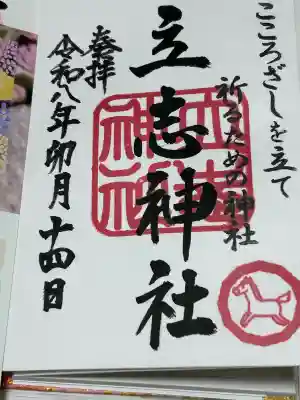 こころざしを立て
祈るための神社
立志神社
奉拝
令和八年卯月十四日
立志神社